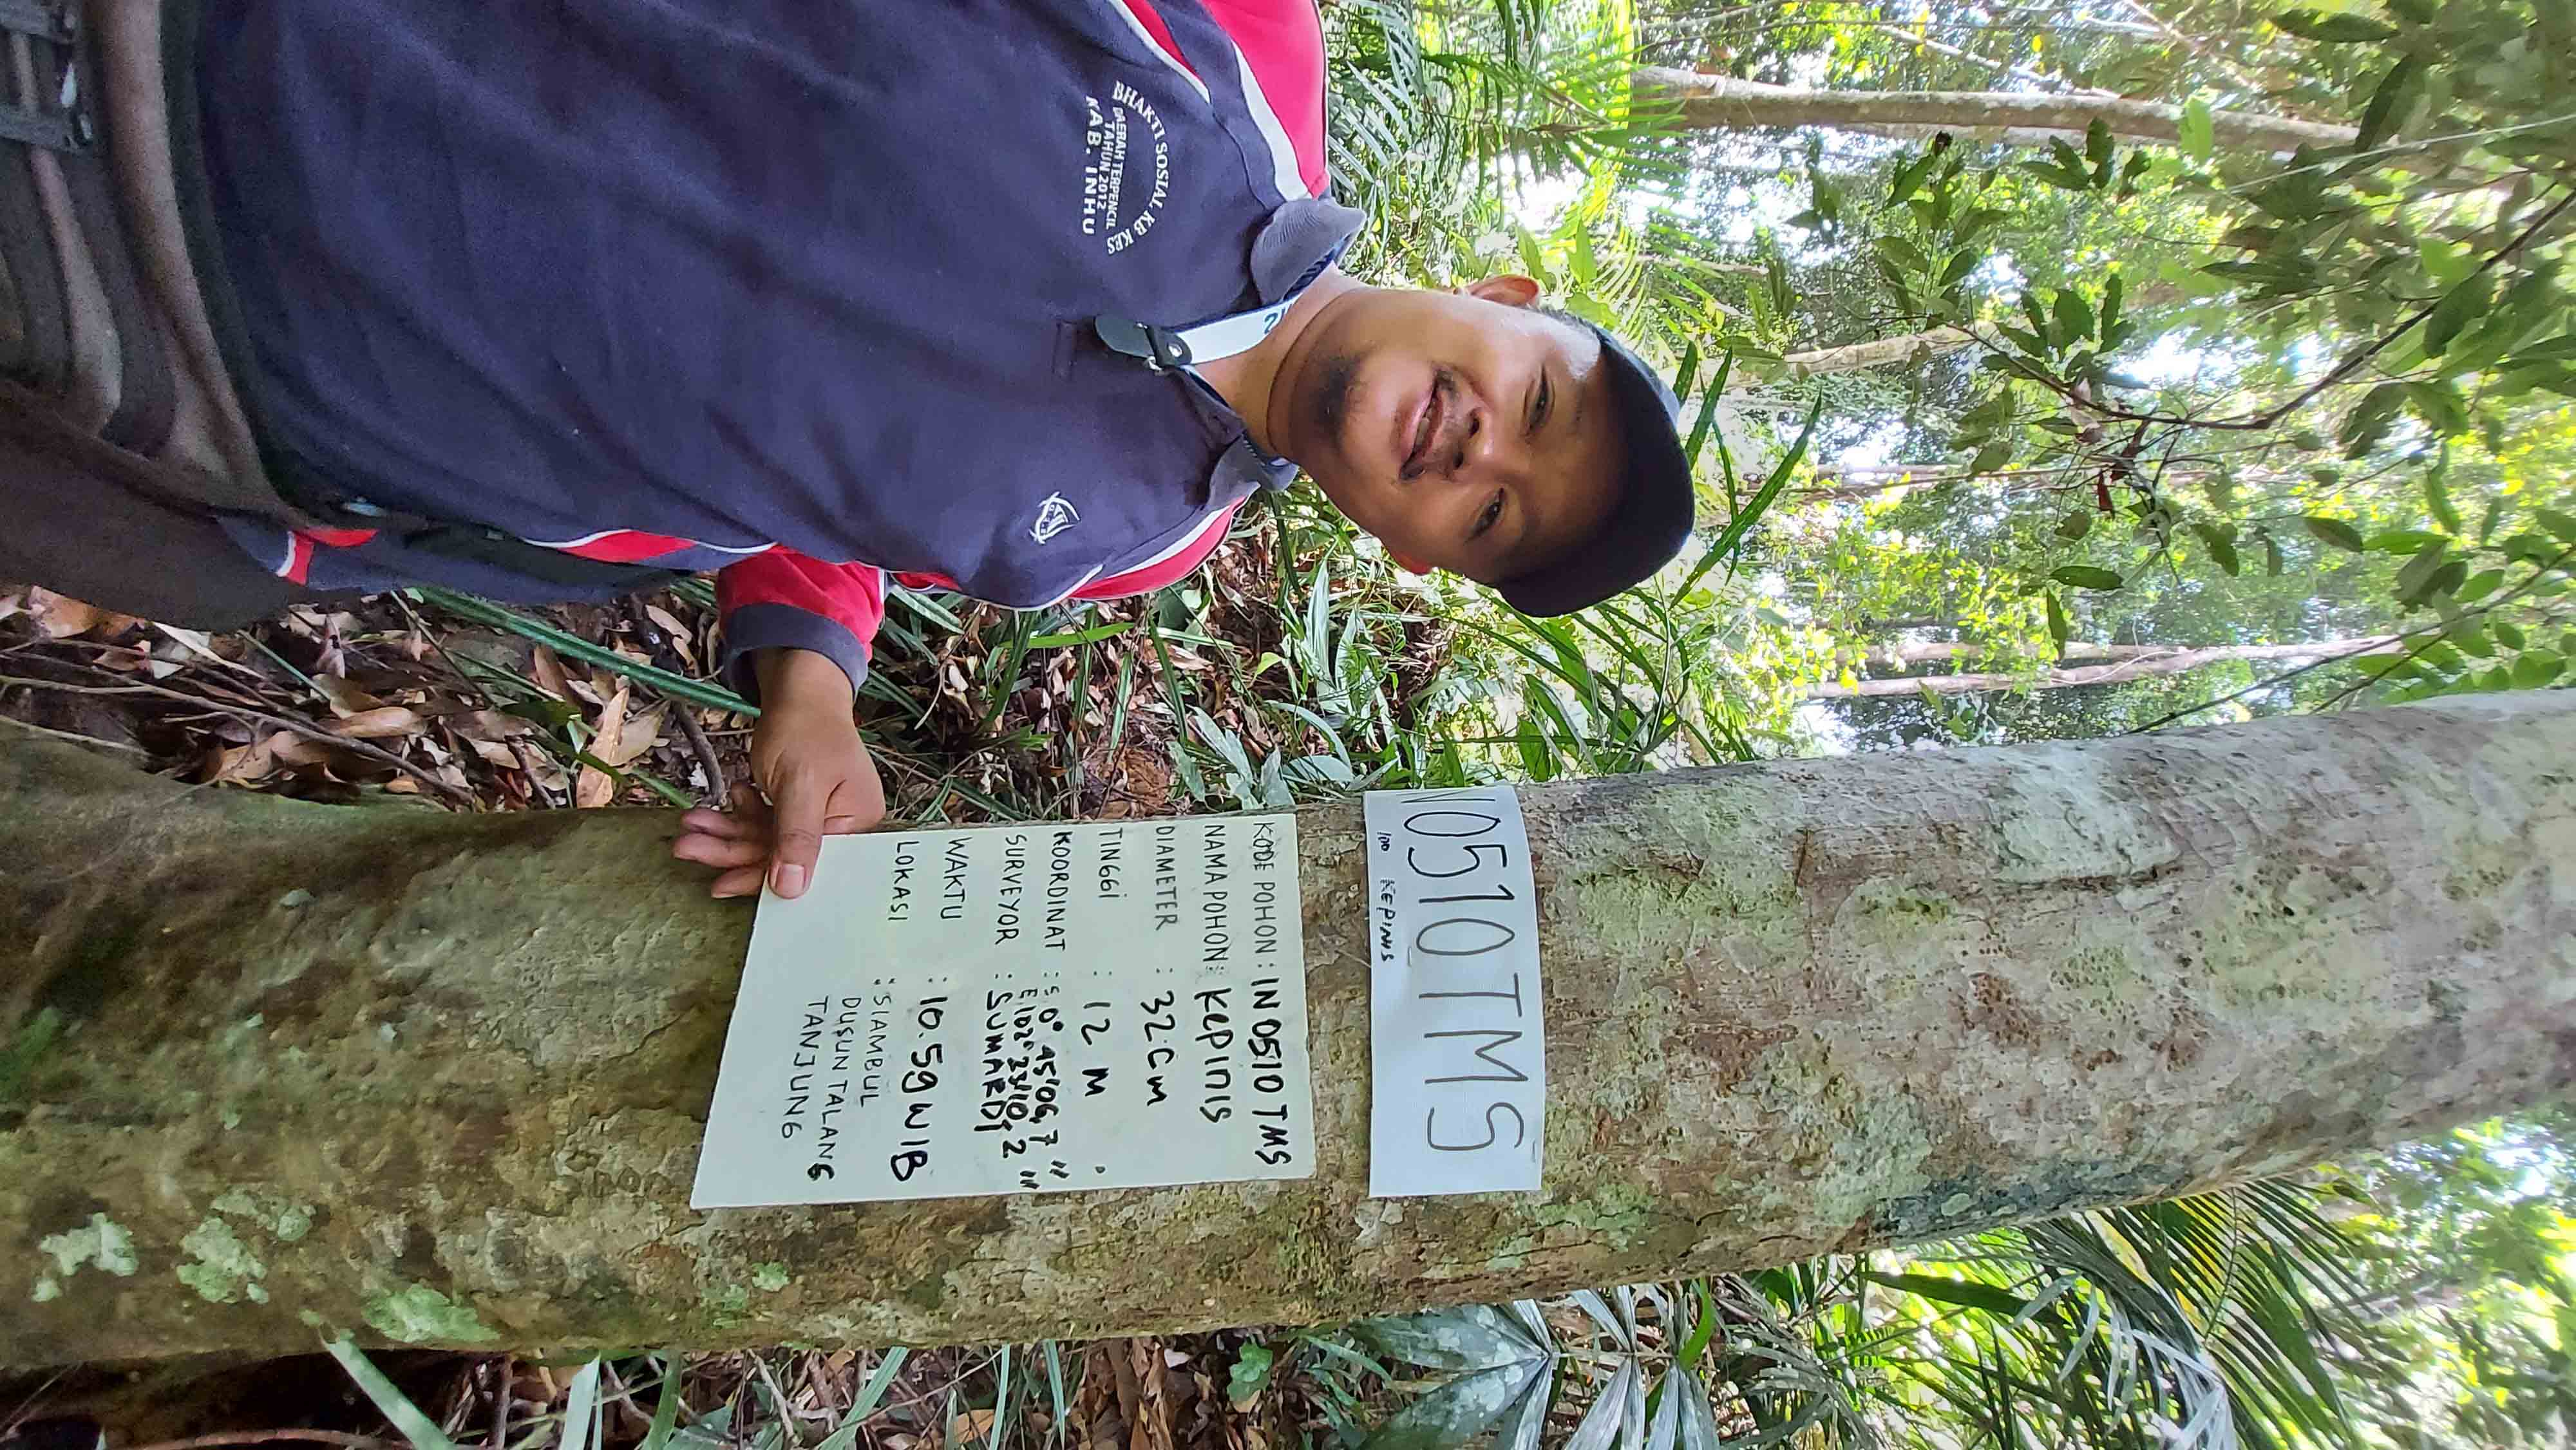 N0510TMS
100 KEPINIS
KODE POHON : IN 0510 TMS
NAMA POHON : KEPINIS
DIAMETER : 32 Cm
TINGGI : 12 M
KOORDINAT : S 0° 45'06,7"
E 102° 23'10,2"
SURVEYOR : SUMARDI
WAKTU : 10.59 WIB
LOKASI : SIAMBUL
DUSUN TALANG
TANJUNG
BHAKTI SOSIAL KB KES
DAERAH TERPENCIL
TAHUN 2012
KAB. INHU